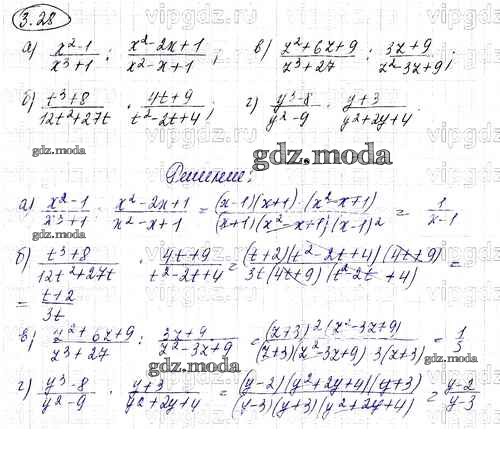 3.28
а) (x²-1)/(x³+1) : (x²-2x+1)/(x²-x+1); в) (z²+6z+9)/(z³+27) : (3z+9)/(z²-3z+9);
б) (t³+8)/(12t²+27t) · (4t+9)/(t²-2t+4); г) (y³-8)/(y²-9) · (y+3)/(y²+2y+4).
gdz.moda
gdz.moda
gdz.moda
Решение:
а) (x²-1)/(x³+1) : (x²-2x+1)/(x²-x+1) = ((x-1)(x+1)·(x²-x+1))/((x+1)(x²-x+1)(x-1)²) = 1/(x-1)
б) (t³+8)/(12t²+27t) · (4t+9)/(t²-2t+4) = ((t+2)(t²-2t+4)(4t+9))/(3t(4t+9)(t²-2t+4)) =
= (t+2)/3t
в) (z²+6z+9)/(z³+27) : (3z+9)/(z²-3z+9) = ((z+3)²(z²-3z+9))/((z+3)(z²-3z+9)·3(z+3)) = 1/3
г) (y³-8)/(y²-9) · (y+3)/(y²+2y+4) = ((y-2)(y²+2y+4)(y+3))/((y-3)(y+3)(y²+2y+4)) = (y-2)/(y-3)
gdz.moda
gdz.moda
vipgdz.com